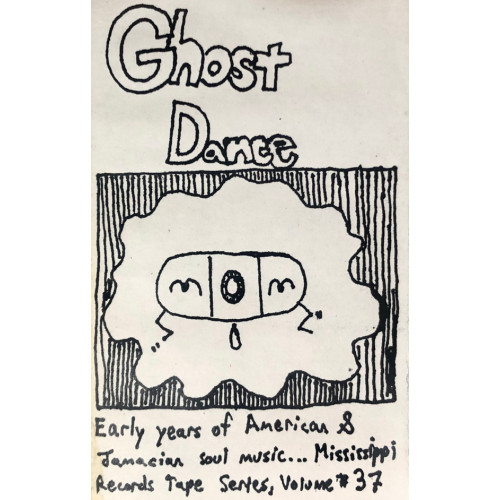 Ghost
Dance
mom
Early years of American &
Jamacian soul music... Mississippi
Records Tape Series, Volume #37